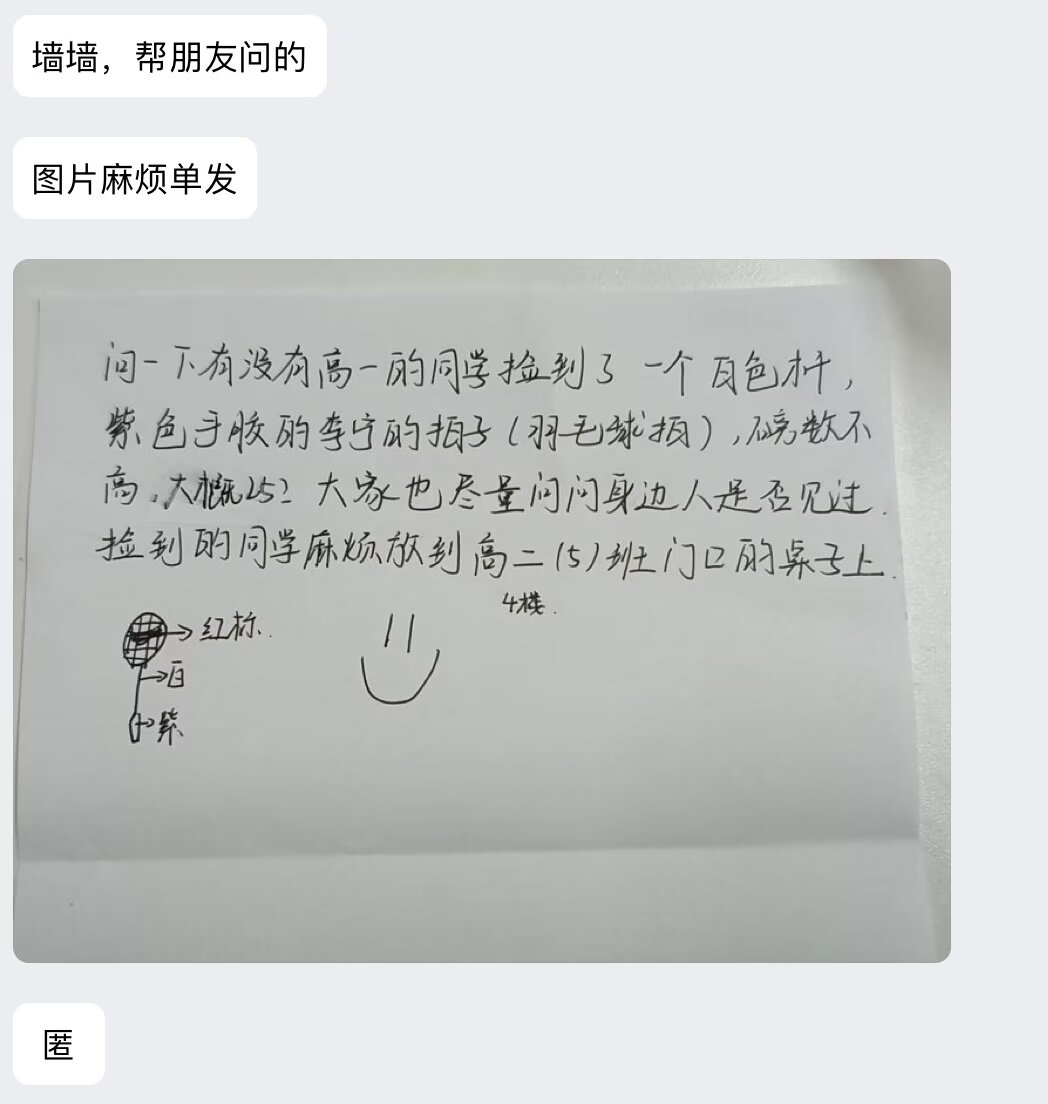 墙墙，帮朋友问的
图片麻烦单发
问一下有没有高一的同学捡到了一个白色杆，
紫色手胶的李宁的拍子（羽毛球拍），磅数不
高，大概25？大家也尽量问问身边人是否见过.
捡到的同学麻烦放到高二（5）班门口的桌子上.
4楼.
红标.
白
紫
匿